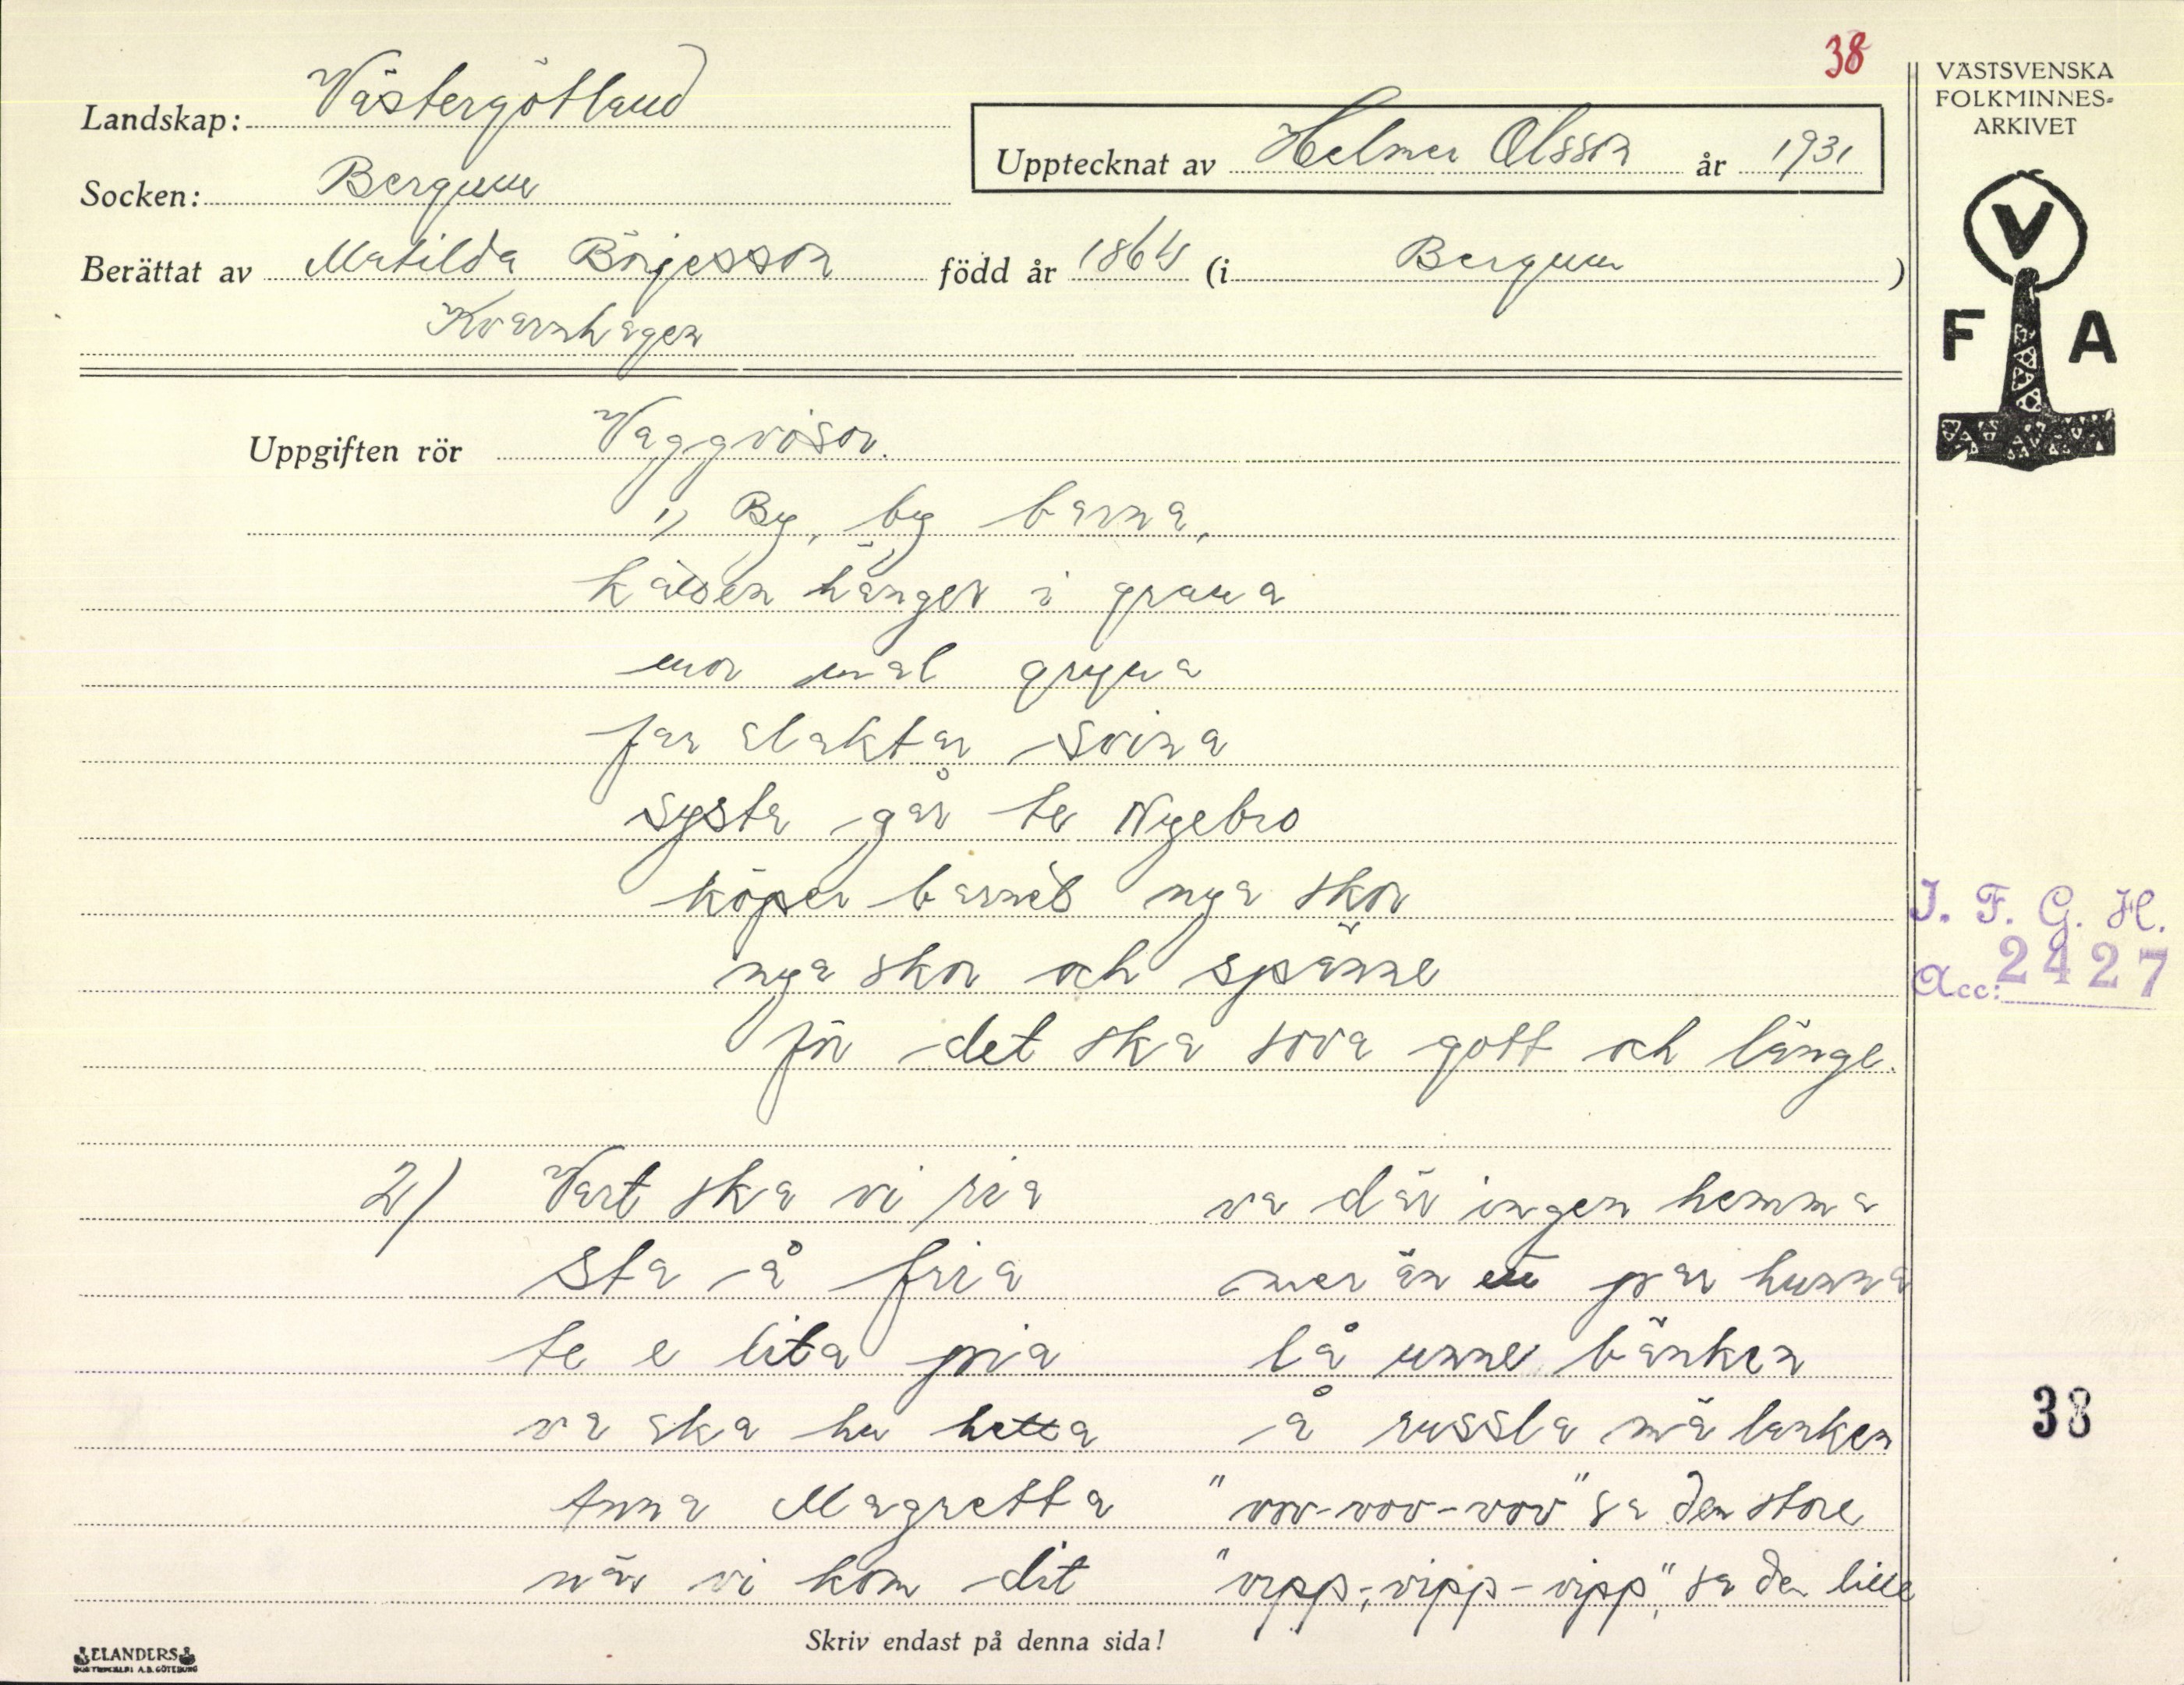 38
VÄSTSVENSKA
FOLKMINNES-
ARKIVET
Landskap: Västergötland
Upptecknat av Helmer Olsson år 1931
Socken: Bergum
Berättat av Matilda Börjesson född år 1864 (i Bergum)
Kvarnhagen
V
F A
Uppgiften rör Vaggvisor.
1) By, by barna,
hänger i grana
mor mal gryna
far slaktar svina
systa går te Nyebro
köper barnet nya skor
nya skor och spänne
för det ska sova gott och länge.
J. F. G. H.
Acc: 2427
2) Vart ska vi ria
Sta å fria
te e lita pia
va ska hu hetta
Anna Magretta
när vi kom dit
va där ingen hemma
mer än ett par hunna
lå unne bänken
å russla mä lanken
"vov-vov-vov" sa den store
"vipp-, vipp-vipp", sa den lille
38
Skriv endast på denna sida!
ELANDERS
BOKTRYCKERI A.B. GÖTEBORG